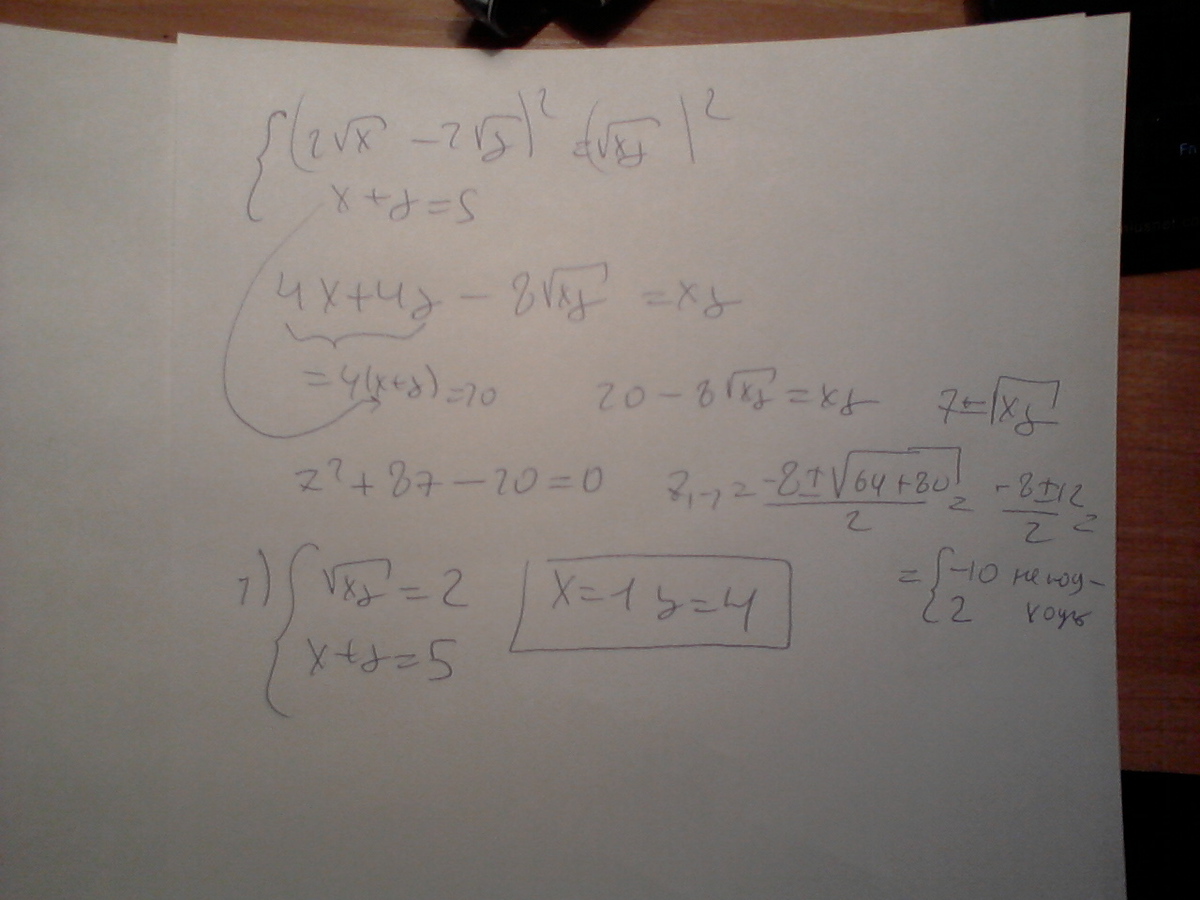 {(2√x − 2√y)² = (√xy)²
x + y = 5
4x + 4y − 8√xy = xy
= 4(x+y) = 20 20 − 8√xy = xy z = √xy
z² + 8z − 20 = 0 z₁,₂ = (-8 ± √(64+80))/2 = (-8 ± 12)/2 =
= {-10 не под-
2 ходит
1) {√xy = 2 x = 1 y = 4
x + y = 5